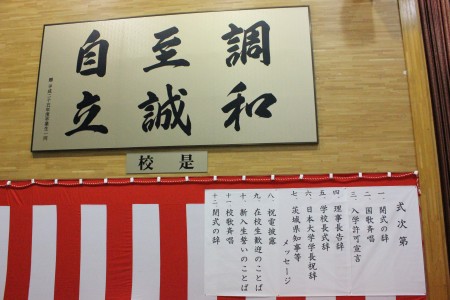 調和
至誠
自立
贈 平成二十五年度卒業生一同
校是
式次第
一、開式の辞
二、国歌斉唱
三、入学許可宣言
四、理事長告辞
五、学校長式辞
六、日本大学学長祝辞
七、茨城県知事等
メッセージ
八、祝電披露
九、在校生歓迎のことば
十、新入生誓いのことば
十一、校歌斉唱
十二、閉式の辞